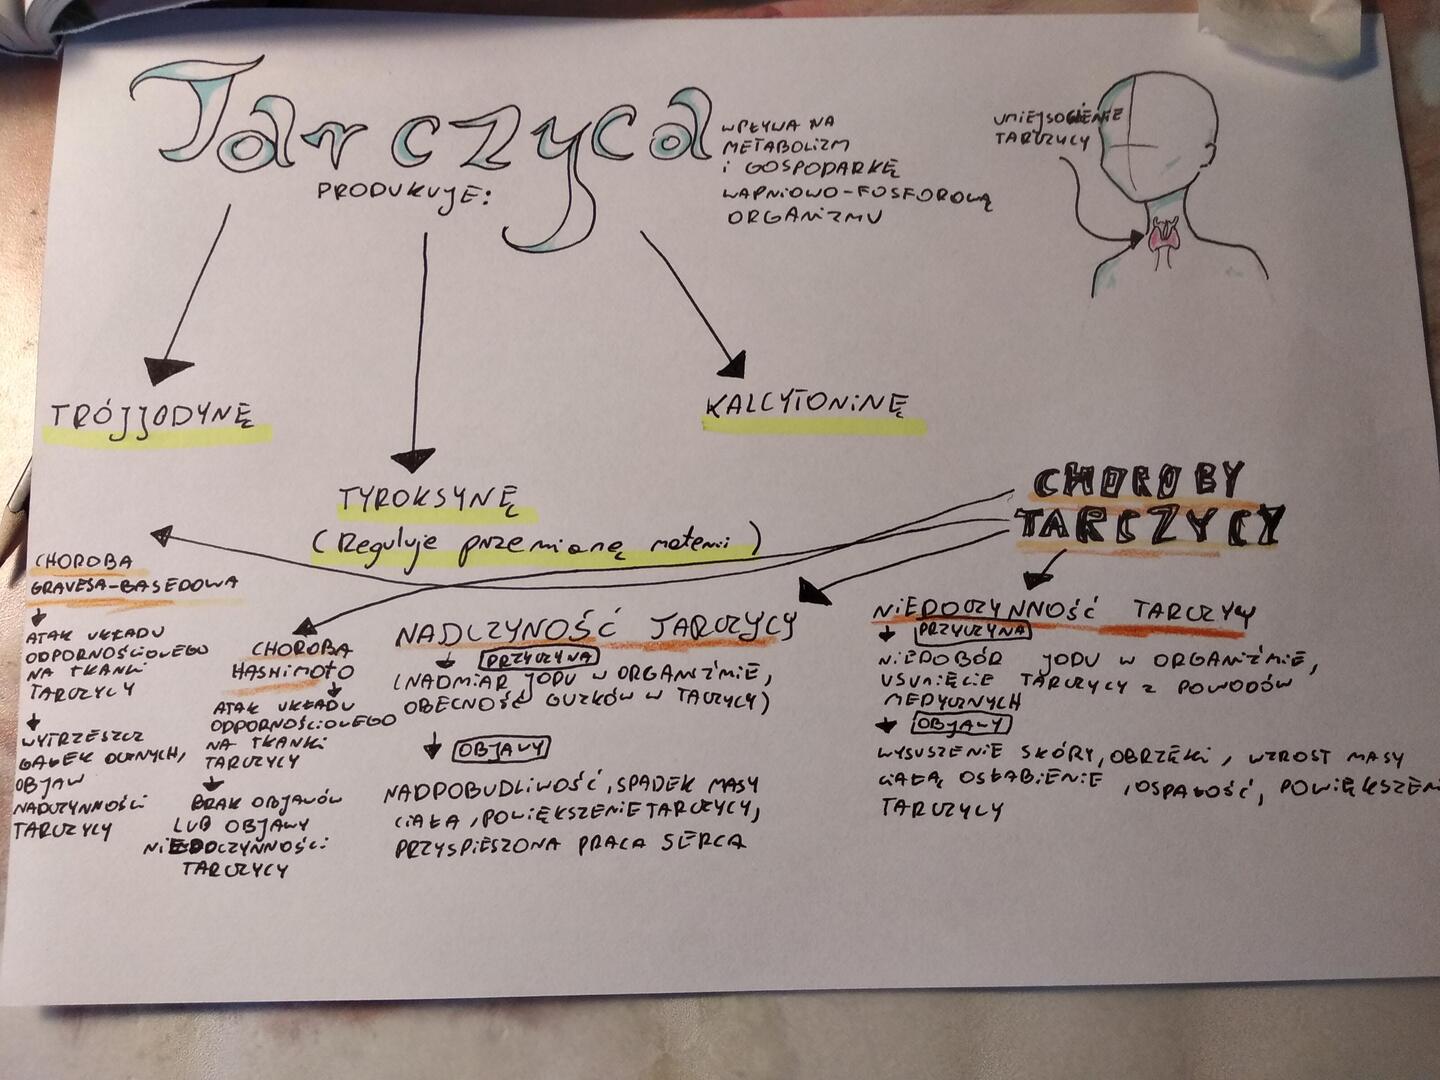 Tarczyca
PRODUKUJE:
WPŁYWA NA
METABOLIZM
i GOSPODARKĘ
WAPNIOWO-FOSFOROWĄ
ORGANIZMU
UMIEJSCOWIENIE
TARCZYCY
TRÓJJODYNĘ
TYROKSYNĘ
(Reguluje przemianę materii)
KALCYTONINĘ
CHOROBY
TARCZYCY
CHOROBA
GRAVESA-BASEDOWA
ATAK UKŁADU
ODPORNOŚCIOWEGO
NA TKANKI
TARCZYCY
WYTRZESZCZ
GAŁEK OCZNYCH,
OBJAW
NADCZYNNOŚCI
TARCZYCY
CHOROBA
HASHIMOTO
ATAK UKŁADU
ODPORNOŚCIOWEGO
NA TKANKI
TARCZYCY
BRAK OBJAWÓW
LUB OBJAWY
NIEDOCZYNNOŚCI
TARCZYCY
NADCZYNOŚĆ TARCZYCY
PRZYCZYNA
(NADMIAR JODU W ORGANIŹMIE,
OBECNOŚĆ GUZKÓW W TACZYCY)
OBJAWY
NADPOBUDLIWOŚĆ, SPADEK MASY
CIAŁA, POWIĘKSZENIE TARCZYCY,
PRZYSPIESZONA PRACA SERCA
NIEDOCZYNNOŚĆ TARCZYCY
PRZYCZYNA
NIEDOBÓR JODU W ORGANIŹMIE,
USUNIĘCIE TARCZYCY Z POWODÓW
MEDYCZNYCH
OBJAWY
WYSUSZENIE SKÓRY, OBRZĘKI, WZROST MASY
CIAŁA, OSŁABIENIE, OSPAŁOŚĆ, POWIĘKSZEN
TARCZYCY